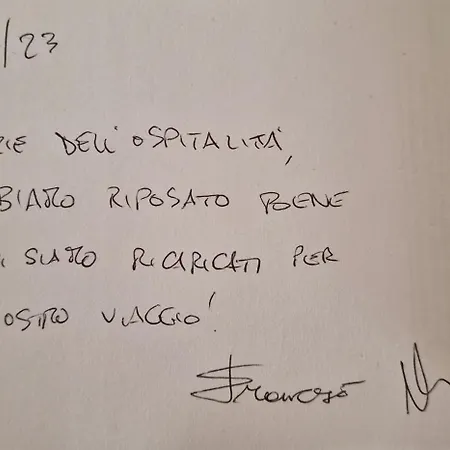 /23
ZIE DELL'OSPITALITÀ,
BIAMO RIPOSATO BENE
I SIAMO RICARICATI PER
OSTRO VIAGGIO!
Francesco